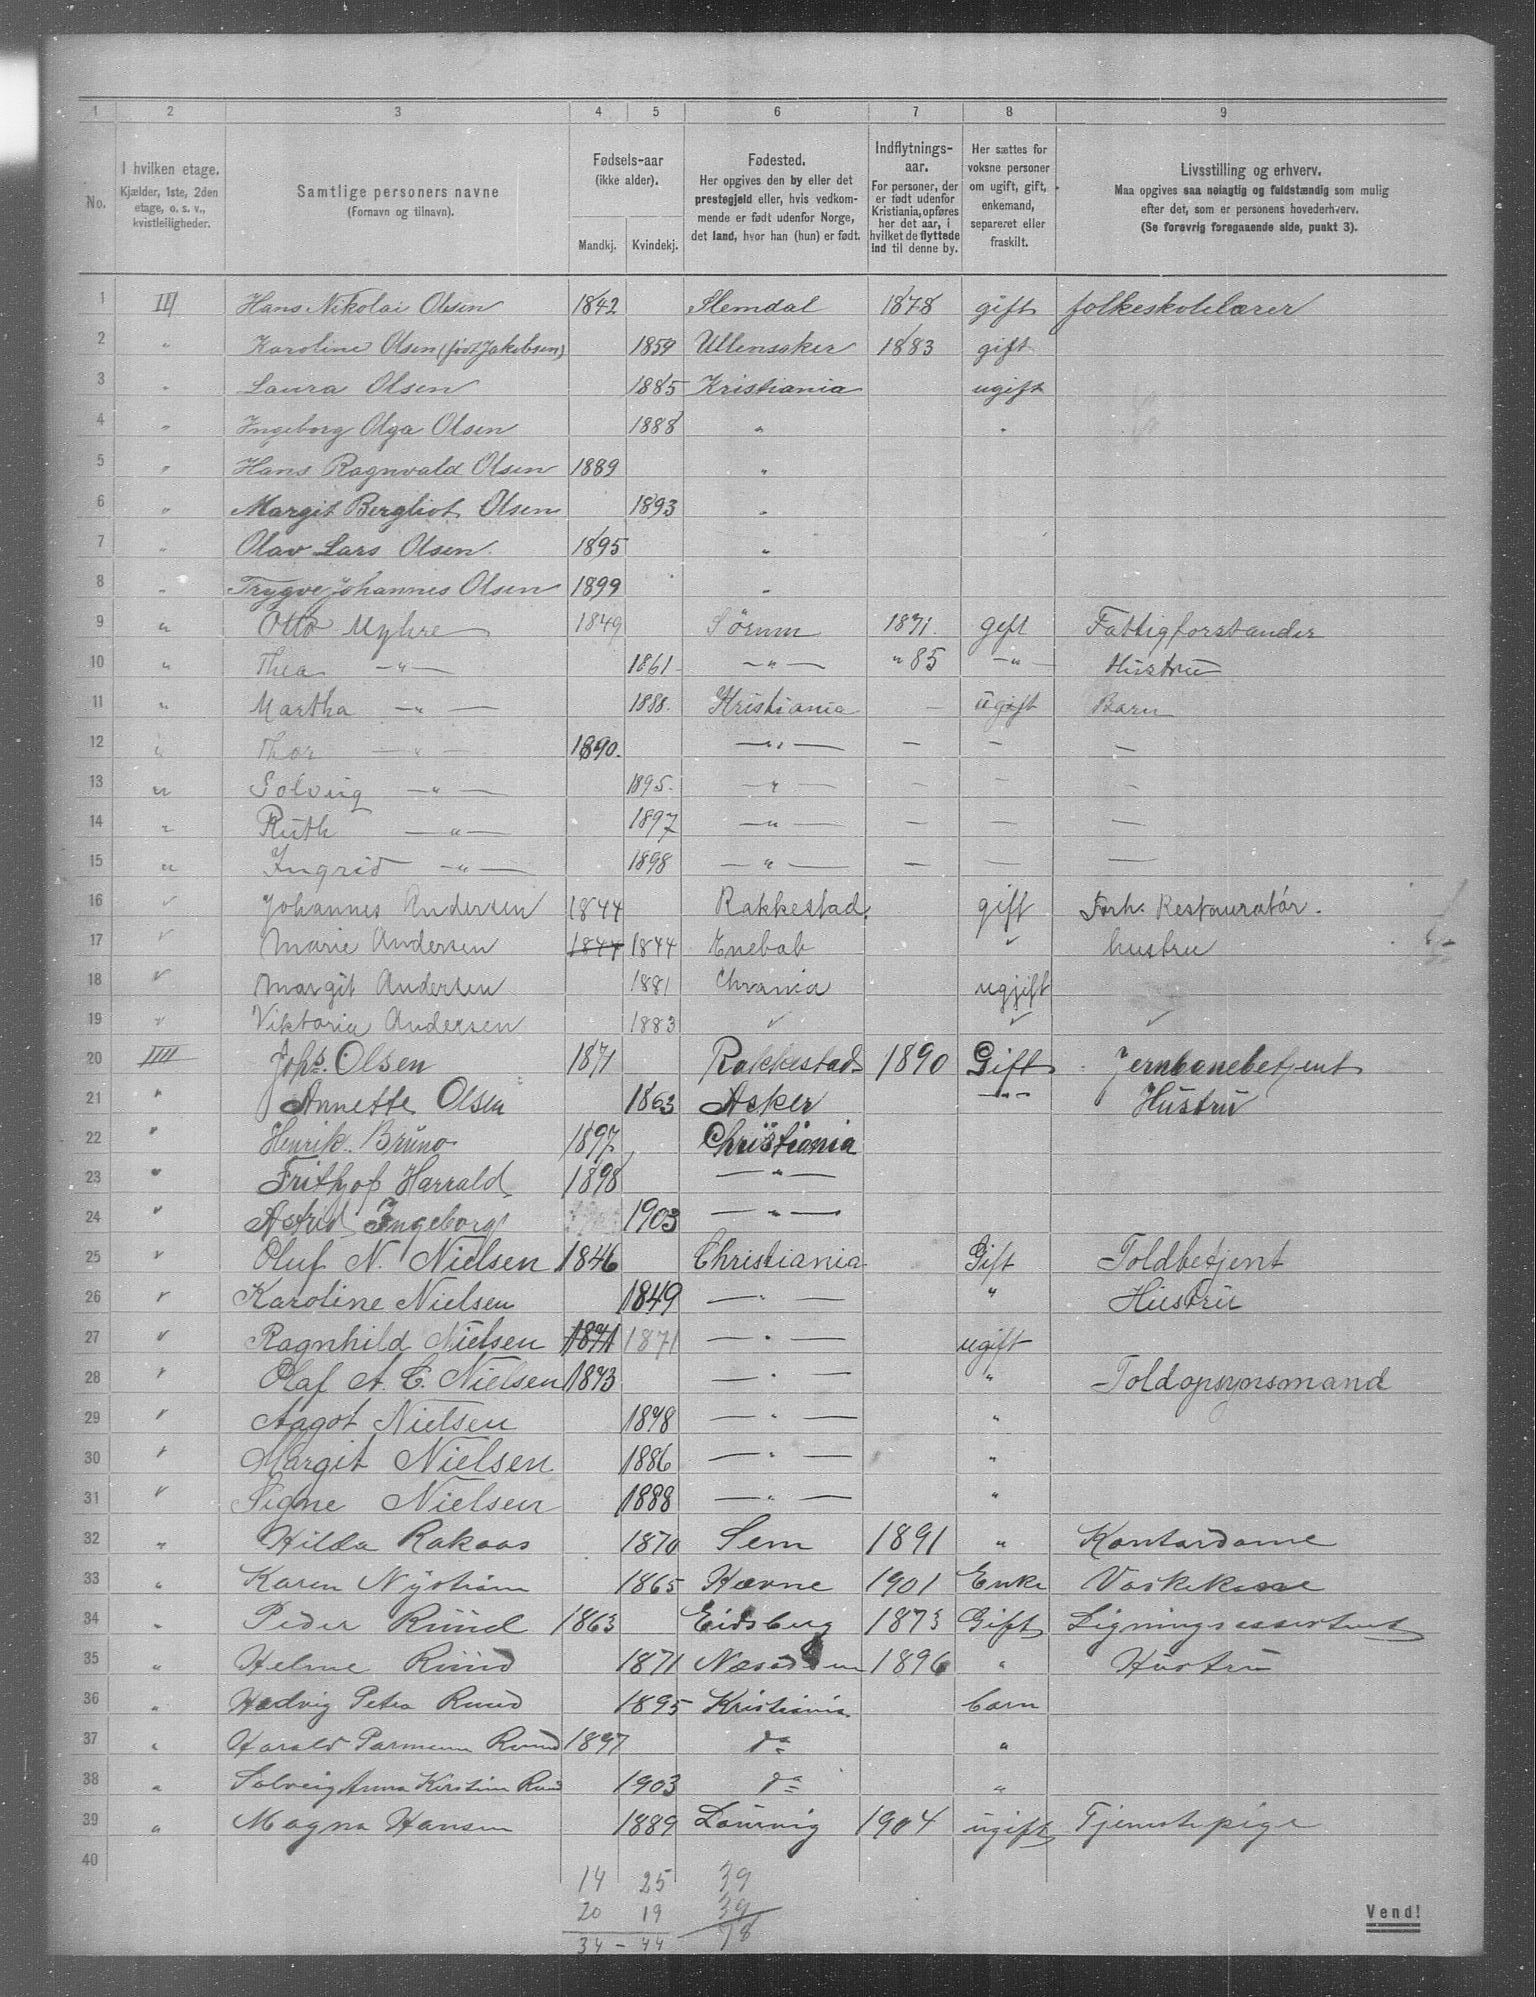 1 2 3 4 5 6 7 8 9
No. | I hvilken etage. Kjælder, 1ste, 2den etage, o. s. v., kvistleiligheder. | Samtlige personers navne (Fornavn og tilnavn). | Fødsels-aar (ikke alder). Mandkj. Kvindekj. | Fødested. Her opgives den by eller det prestegjeld eller, hvis vedkommende er født udenfor Norge, det land, hvor han (hun) er født. | Indflytnings-aar. For personer, der er født udenfor Kristiania, opføres her det aar, i hvilket de flyttede ind til denne by. | Her sættes for voksne personer om ugift, gift, enkemand, separeret eller fraskilt. | Livsstilling og erhverv. Maa opgives saa nøiagtig og fuldstændig som mulig efter det, som er personens hovederhverv. (Se forøvrig foregaaende side, punkt 3).
1 III Hans Nikolai Olsen 1842 Slemdal 1878 gift folkeskolelærer
2 " Karoline Olsen (født Jakobsen) 1859 Ullensaker 1883 gift
3 " Laura Olsen 1885 Kristiania ugift
4 " Ingeborg Olga Olsen 1888 " "
5 " Hans Ragnvald Olsen 1889 "
6 " Margit Bergliot Olsen 1893 "
7 " Olav Lars Olsen 1895 "
8 " Trygve Johannes Olsen 1899 "
9 " Otto Myhre 1849 Sörum 1871. gift Fattigforstander
10 " Thea —"— 1861 —"— " 85 —"— Hustru
11 " Martha —"— 1888. Kristiania — ugift Barn
12 " Thor —"— 1890. —"— — — —
13 " Solveig —"— 1895. —"— — — —
14 " Ruth —"— 1897 —"— — — —
15 " Ingrid —"— 1898 —"— — — —
16 " Johannes Andersen 1844 Rakkestad gift Forh. Restauratör.
17 " Marie Andersen 1844 1844 Enebak " hustru
18 " Margit Andersen 1881 Chrania ugift
19 " Viktoria Andersen 1883 " " "
20 IIII Johs. Olsen 1871 Rakkestad 1890 Gift Jernbanebetjent
21 " Annette Olsen 1863 Asker —"— Hustru
22 " Henrik Bruno 1897 Christiania
23 " Frithjof Harrald 1898 —"—
24 " Astrid Ingeborg 1903 —"—
25 " Oluf N. Nielsen 1846 Christiania Gift Toldbetjent
26 " Karoline Nielsen 1849 —"— " Hustru
27 " Ragnhild Nielsen 1871 1871 —"— ugift
28 " Olaf A. C. Nielsen 1873 —"— " Toldopsynsmand
29 " Aagot Nielsen 1878 —"— "
30 " Margit Nielsen 1886 —"— "
31 " Signe Nielsen 1888 —"— "
32 " Hilda Rakaas 1870 Sem 1891 " Kontordame
33 " Karen Nyström 1865 Hevne 1901 Enke Vaskekone
34 " Peder Ruud 1863 Eidsberg 1873 Gift Ligningsassistent
35 " Helene Ruud 1871 Næsodden 1896 " Hustru
36 " Hedvig Petra Ruud 1895 Kristiania barn
37 " Harald Ruud 1897 do "
38 " Solveig Anna Kirstine Ruud 1903 do "
39 " Magna Hansen 1889 Laurvig 1904 ugift Tjenestepige
40
14 25 39
20 19 39
34 - 44 78
Vend!